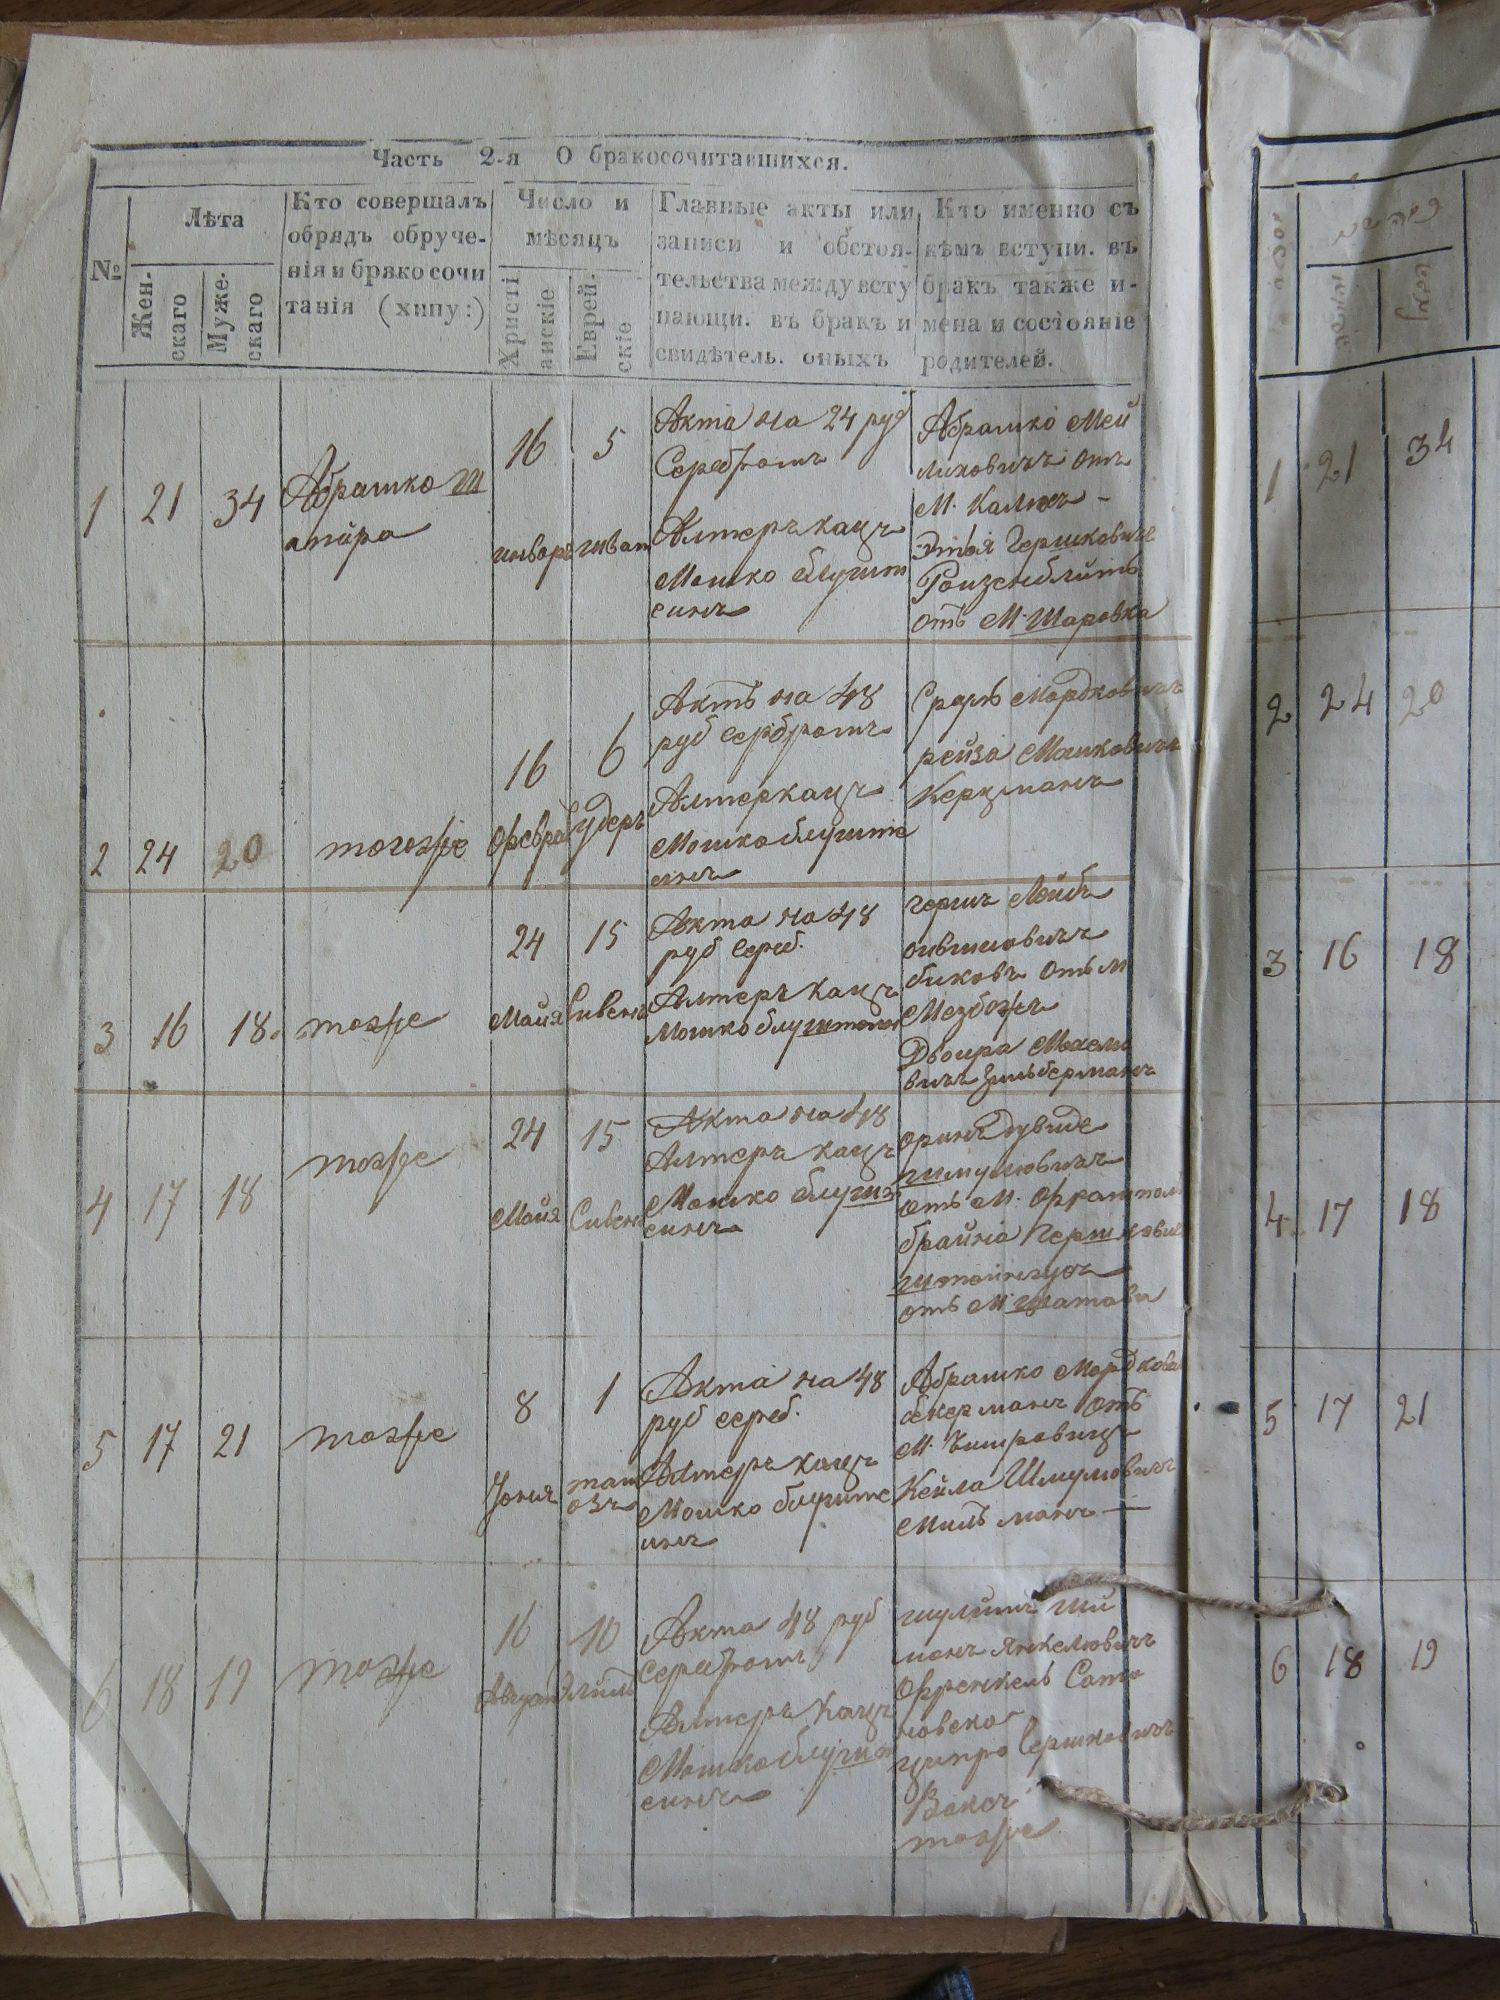 Часть 2-я О бракосочитавшихся.
№
Лѣта
Жен-
скаго
Муже-
скаго
Кто совершалъ
обрядъ обруче-
нія и брако сочи
танія (хипу:)
Число и
мѣсяцъ
Христі
анскіе
Еврей-
скіе
Главные акты или
записи и обстоя-
тельства между всту
пающи. въ бракъ и
свидѣтель. оныхъ
Кто именно съ
кѣмъ вступи. въ
бракъ также и-
мена и состояніе
родителей.
1 21 34
Абрашко Ш
апира
16 5
январь шват
Акта на 24 руб
Серебромъ
Алтеръ кацъ
Мошко блушт
еинъ
Абрашко Мей
лиховичъ отъ
М. Калюсъ -
Этля Гершковиче
Роизенблитъ
отъ М. Шаровка
2 24 20
тогоже
16 6
Февра
Актъ на 48
руб серебромъ
Алтеркацъ
Мошко блуште
инъ
Сруль Мордковичъ
рейза Мошковичъ
Керцманъ
3 16 18.
тоже
24 15
Майя Сивенъ
Акта на 48
руб сереб.
Алтеръ кацъ
Мошко блуштеин
герш Лейб
биковъ отъ м
Межбожъ
Двоира
вичъ Зильберманъ
4 17 18
тоже
24 15
Майя Сивен
Акта на 48
Алтеръ кацъ
Мошко блушт
еинъ
отъ М. Фрампол
брайна Гершкови
штейнгухъ
отъ М. Шатава
5 17 21
тоже
8 1
Июня там
озъ
Акта на 48
руб сереб.
Алтеръ кацъ
Мошко блуште
инъ
Абрашко Мордкови
акерманъ отъ
М.
Кейла Шмулювичъ
Мильманъ —
6 18 19
тоже
16 10
Август Элиль
Акта 48 руб
Серебромъ
Алтеръ Кацъ
Мошко блушт
еинъ
шулимъ Ши
монъ Янкелювичъ
Френкель Сата
новска
ципра Гершковичъ
Ваксъ
тоже
1 21 34
2 24 20
3 16 18
4 17 18
5 17 21
6 18 19